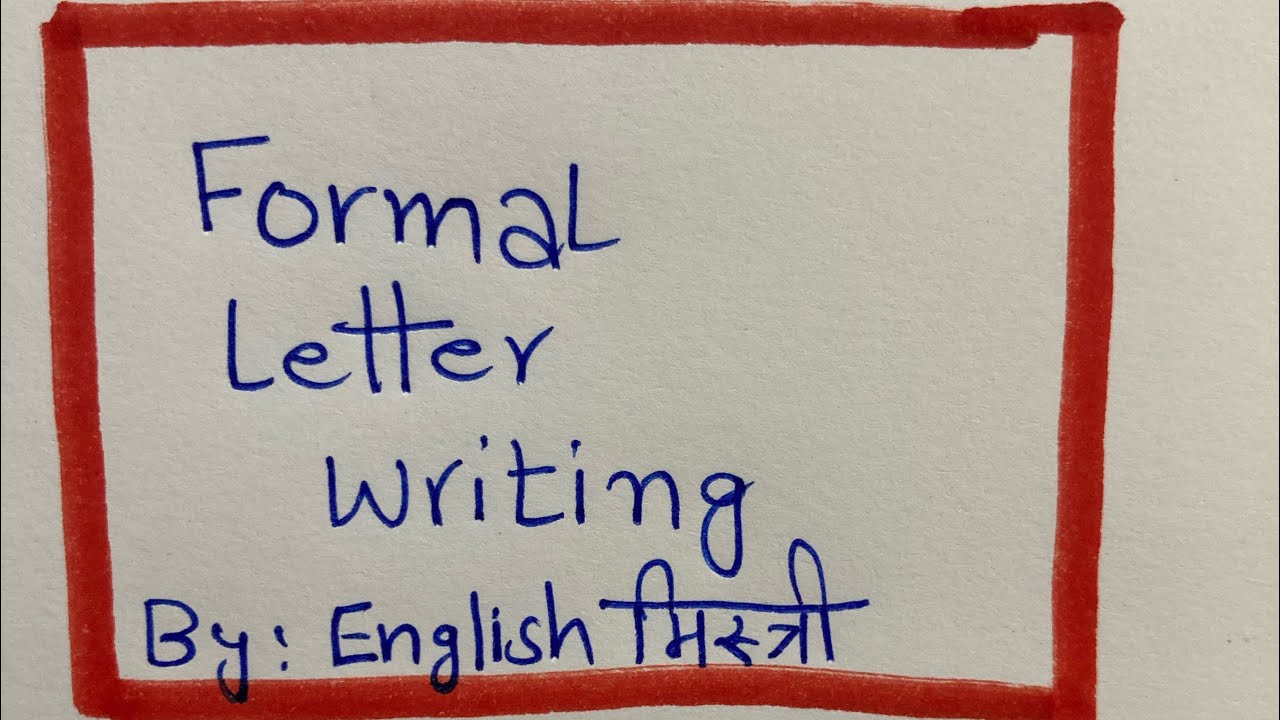 Formal
Letter
Writing
By: English मिस्त्री